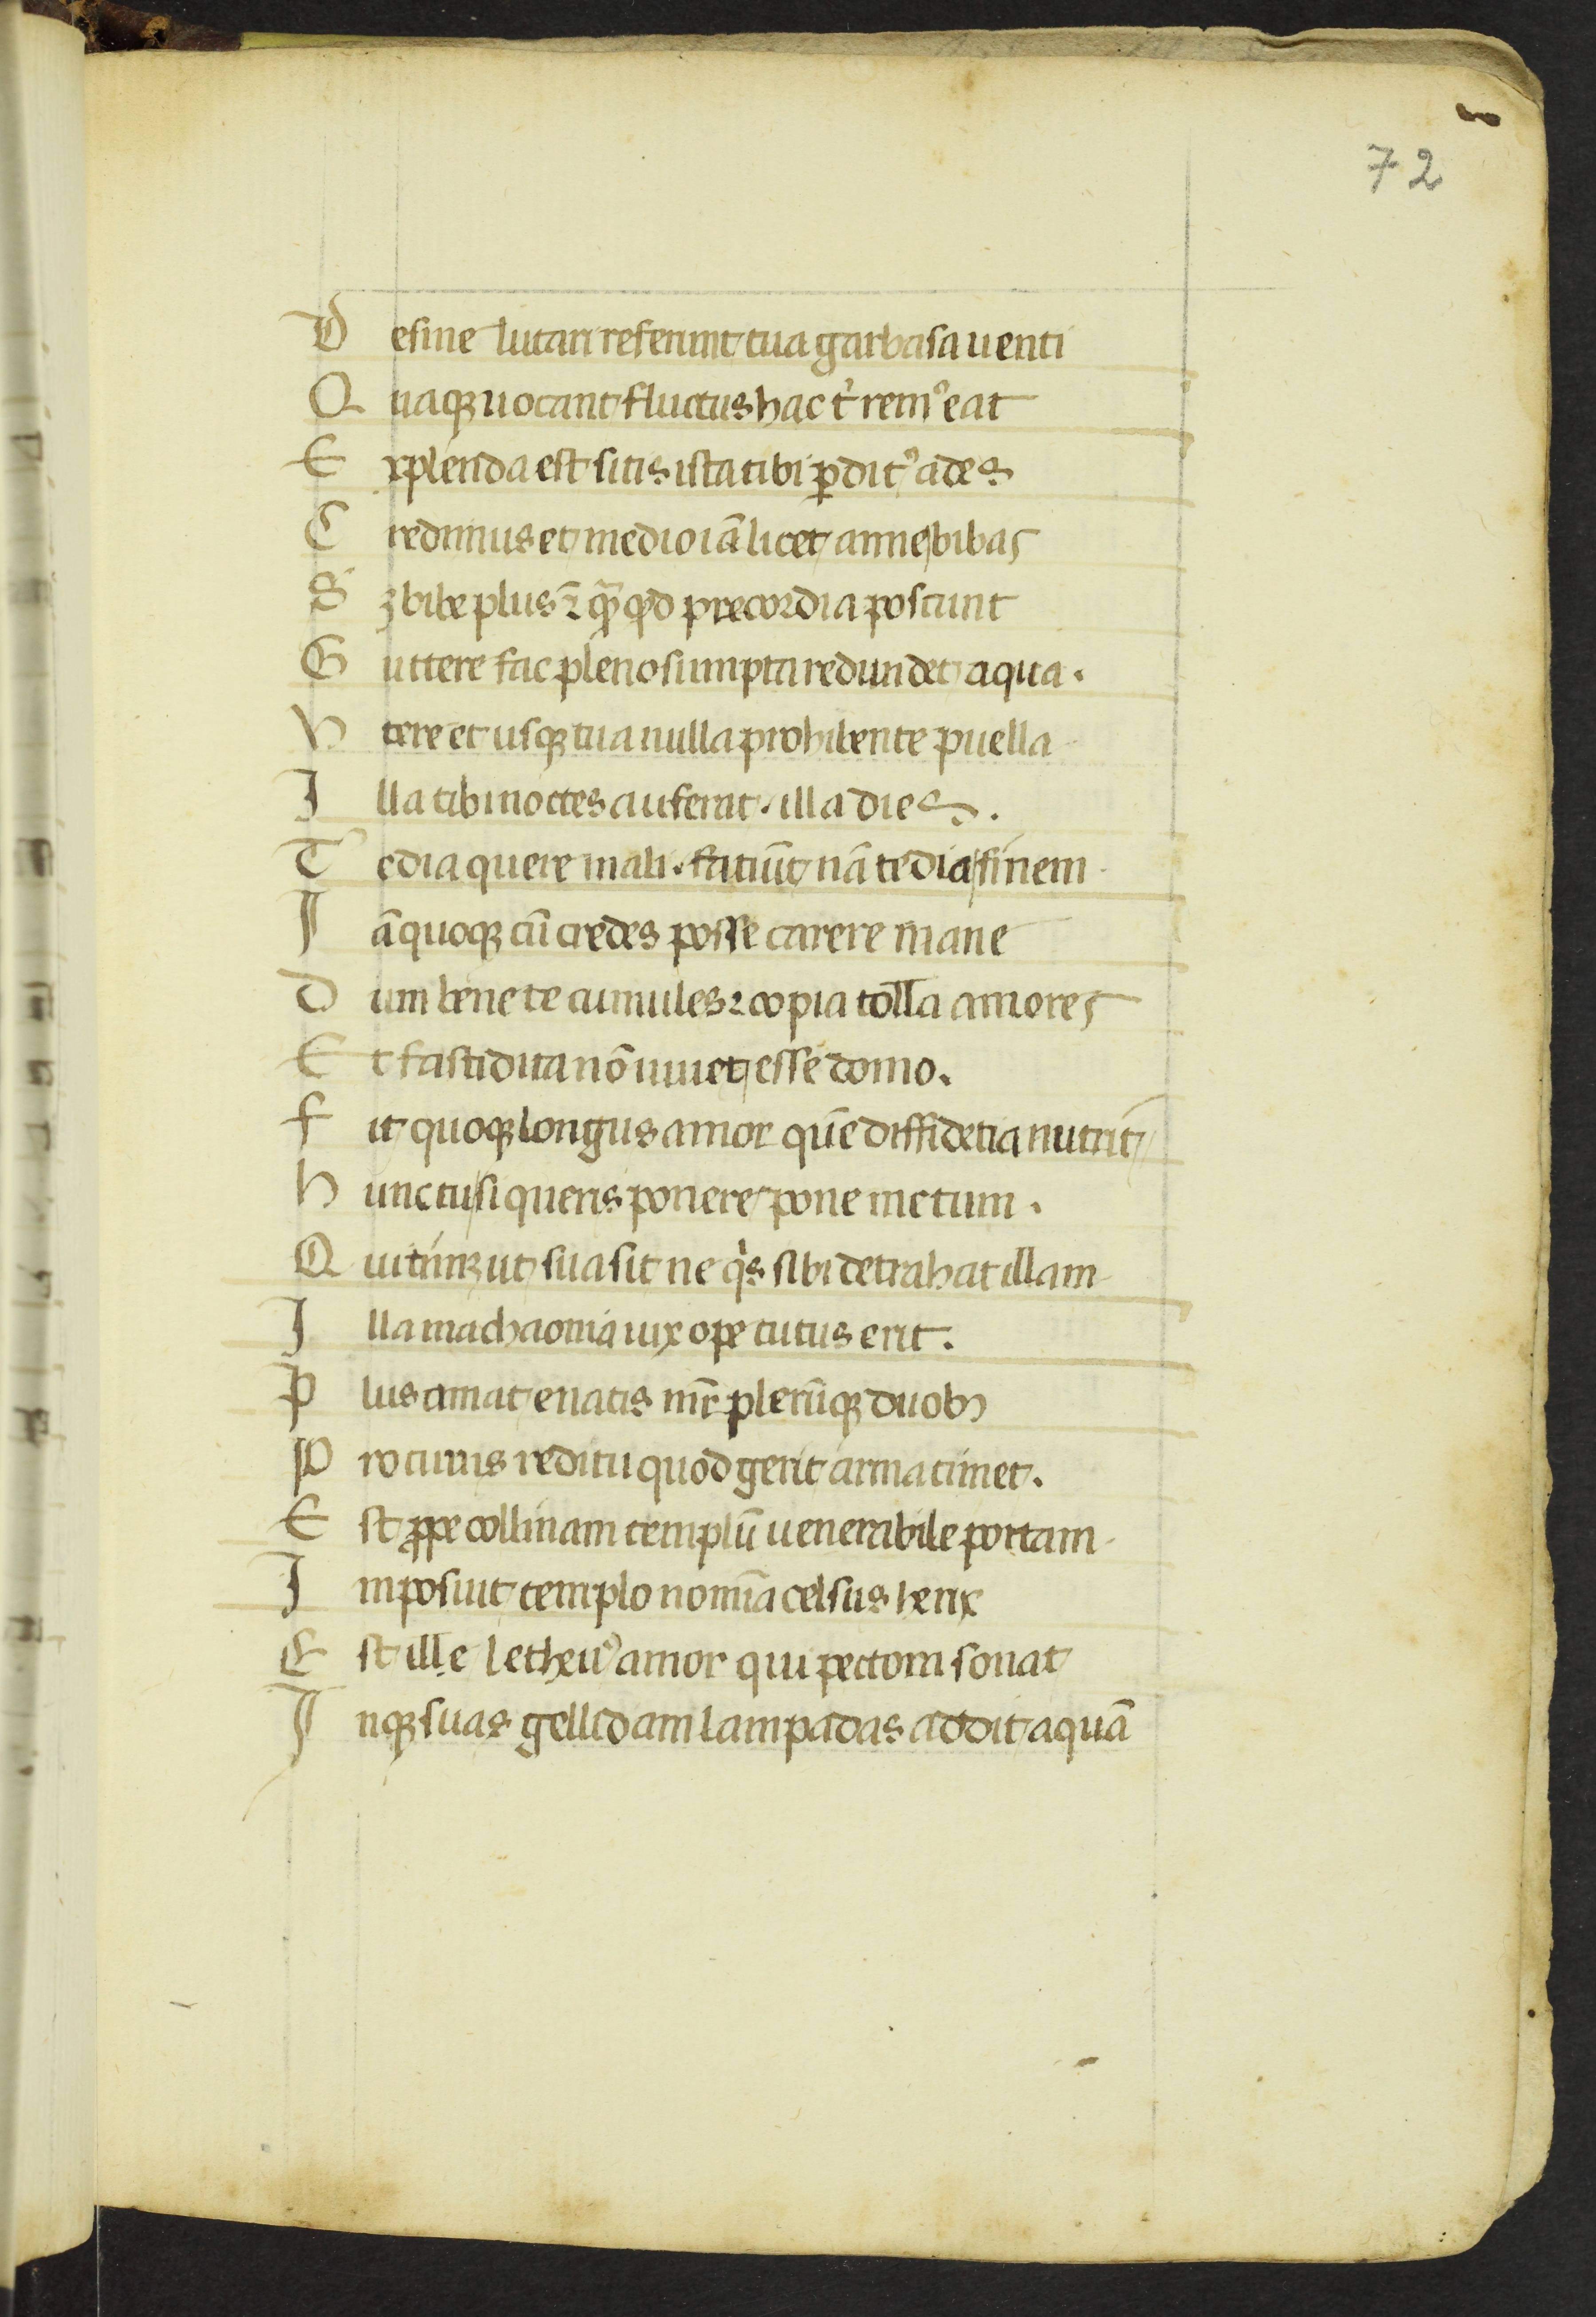 72
D esine lutari referunt tua garbasa uenti
Q uaqꝫ uocant fluctus hac t̉ remꝰ eat
E xplenda est sitis ista tibi ꝑditꝰ ades
C redimus et medio iã licet amne bibas
S ꝫ bibe plus ⁊̃ q̃ꝫ qd̃ precordia poscunt
G uttere fac pleno sumpta redundet aqua.
V tere et usqꝫ tua nulla prohibente puella
I lla tibi noctes auferat. illa dies.
T edia quere mali. fatiũt nã tedia finem
I ã quoqꝫ cũ credes posse carere mane
D um bene te cumules ⁊ copia tolla amores
E t fastidita nõ iuuet esse domo.
F it quoqꝫ longus amor quẽ diffidẽtia nutrit
H unc tu si queris ponere pone metum.
Q ui timꝫ ut sua sit ne qͥs sibi detrahat illam
I lla machaonia uix ope tutus erit.
P lus amat e natis mr̃ plerũqꝫ duobꝫ
P ro cuius reditu quod gerit arma timet.
E st ꝓpe collinam templũ uenerabile portam
I mposuit templo nomĩa celsus herix
E st ille letheuꝰ amor qui pectora sonat
I nqꝫ suas gellidam lampadas addit aquã